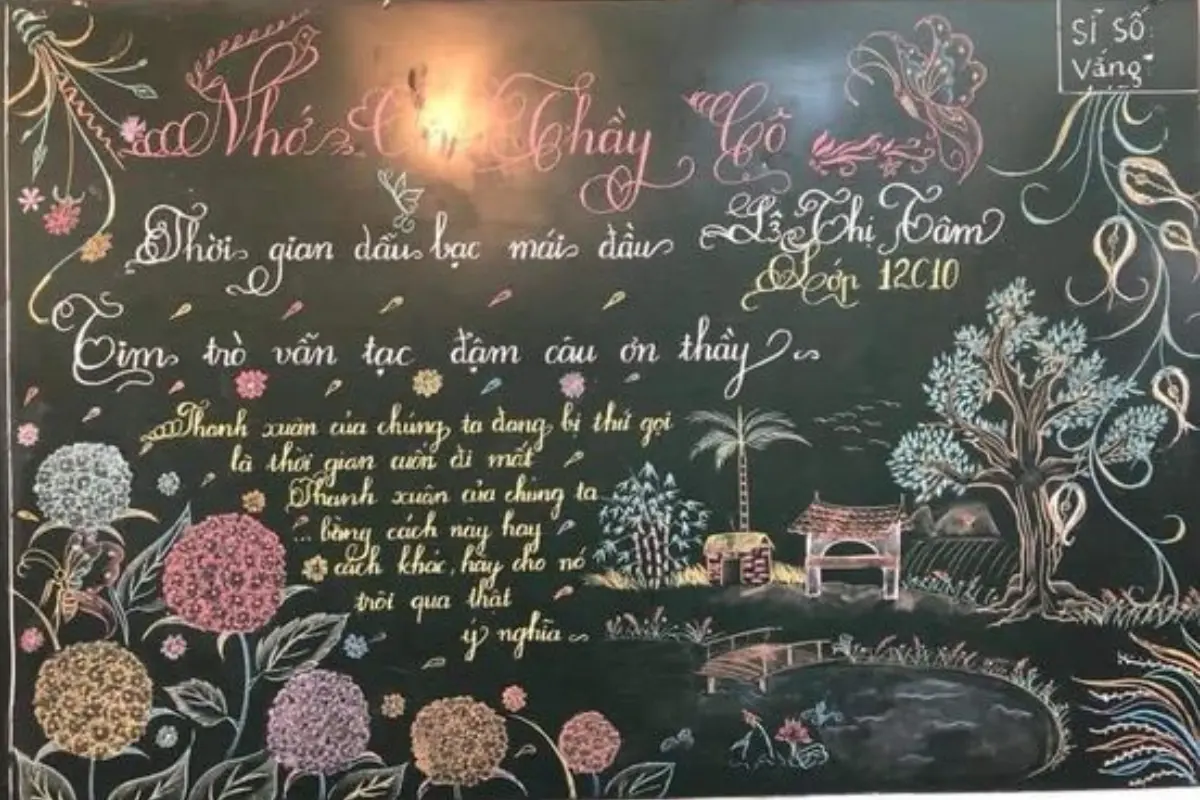 SĨ SỐ:
Vắng:
Nhớ Ơn Thầy Cô
Thời gian dẫu bạc mái đầu
Tim trò vẫn tạc đậm câu ơn thầy
Lê Thị Tâm
Lớp 12C10
Thanh xuân của chúng ta đang bị thứ gọi
là thời gian cuốn đi mất
Thanh xuân của chúng ta
... bằng cách này hay
cách khác, hãy cho nó
trôi qua thật
ý nghĩa